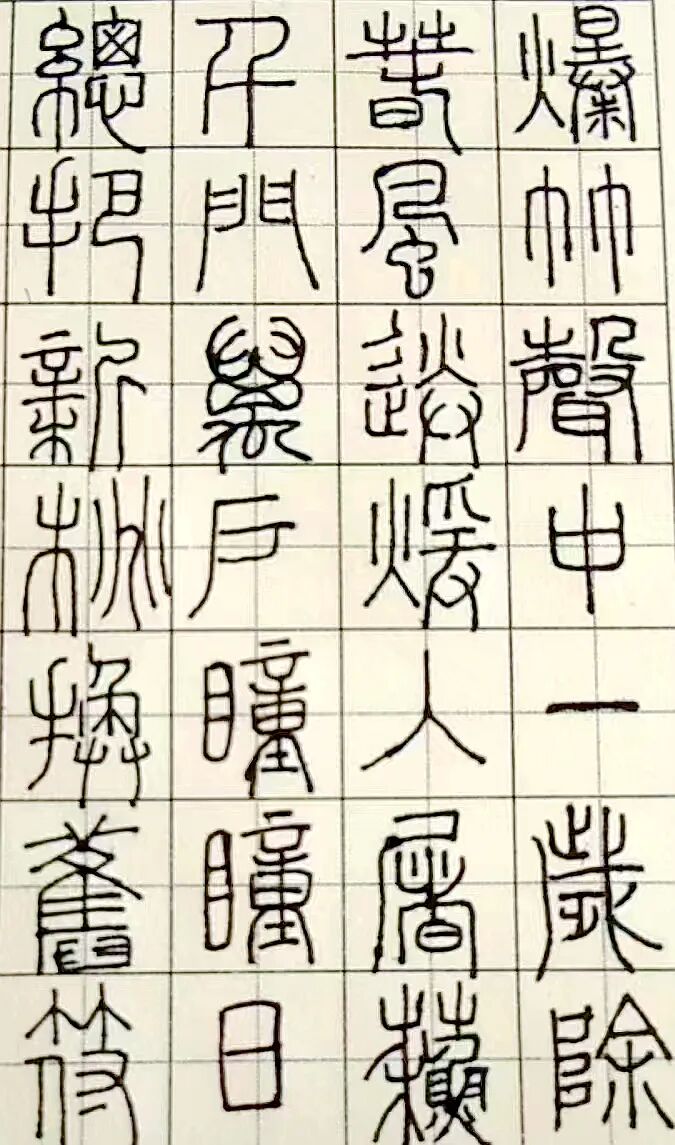 爆竹聲中一歲除
春風送煖入屠蘇
千門萬戶曈曈日
總把新桃換舊符